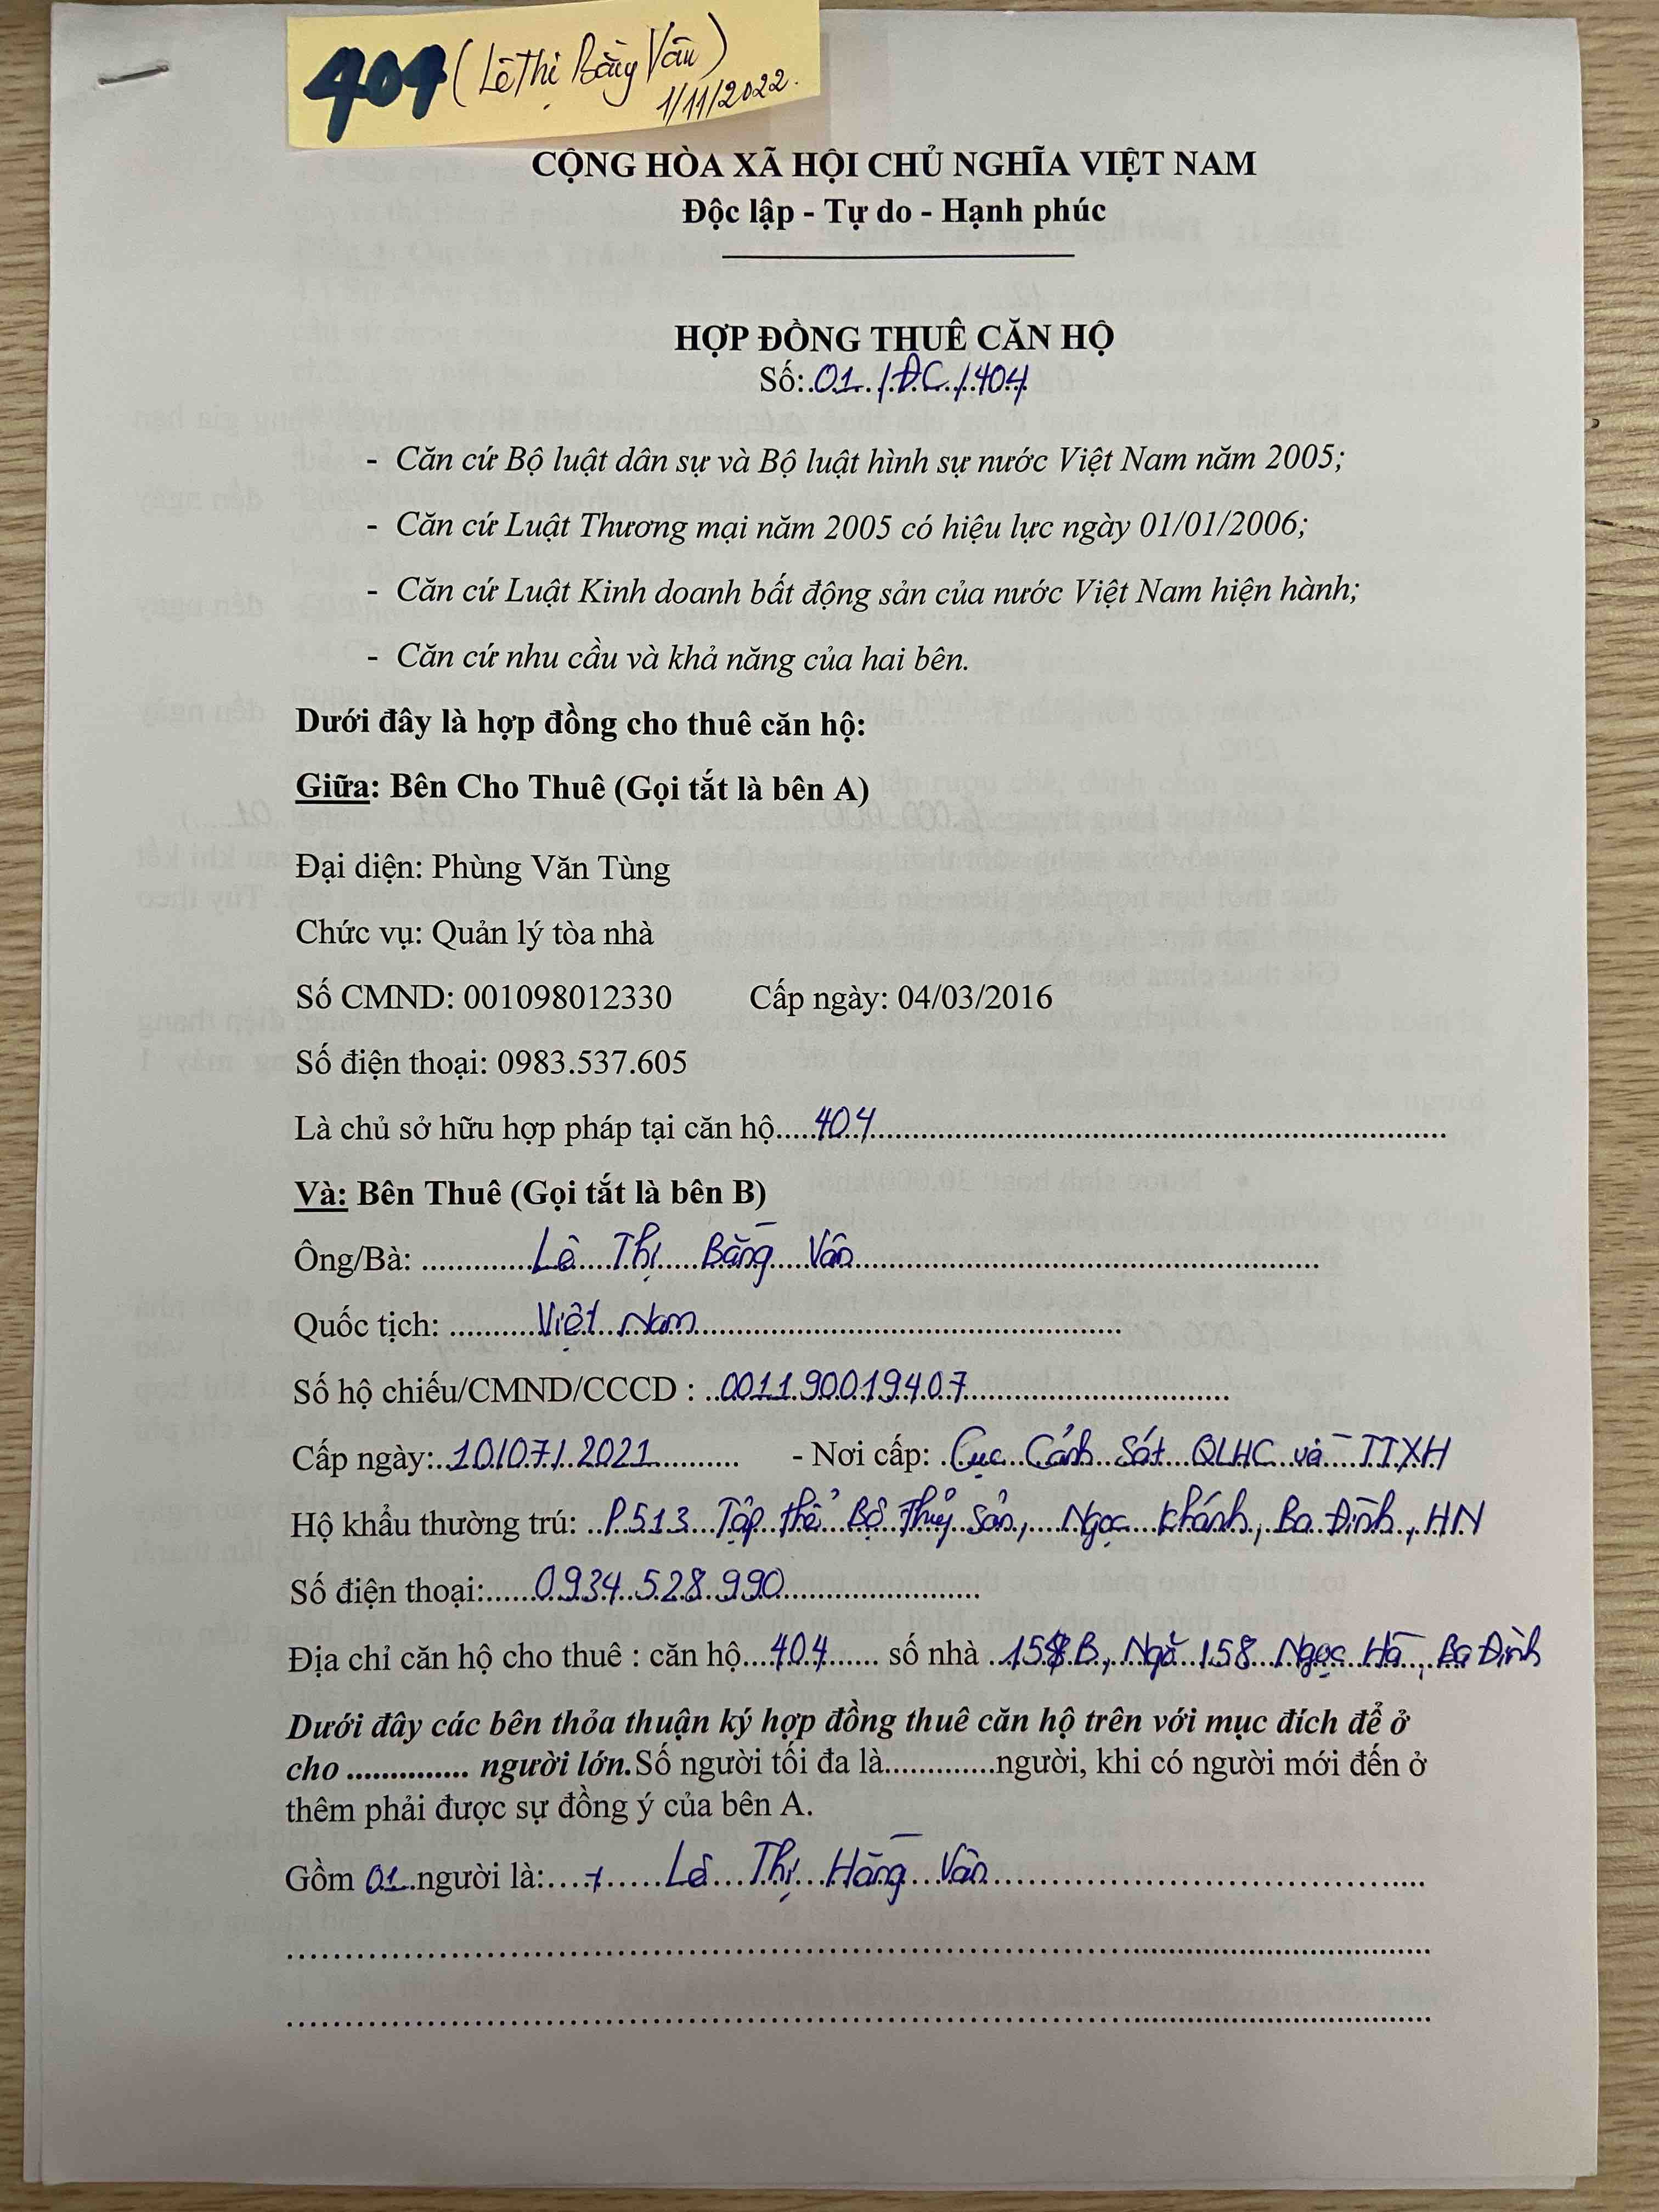 404 (Lê Thị Bằng Vân)
1/11/2022.
CỘNG HÒA XÃ HỘI CHỦ NGHĨA VIỆT NAM
Độc lập - Tự do - Hạnh phúc
HỢP ĐỒNG THUÊ CĂN HỘ
Số: 01 / ĐC / 404
- Căn cứ Bộ luật dân sự và Bộ luật hình sự nước Việt Nam năm 2005;
- Căn cứ Luật Thương mại năm 2005 có hiệu lực ngày 01/01/2006;
- Căn cứ Luật Kinh doanh bất động sản của nước Việt Nam hiện hành;
- Căn cứ nhu cầu và khả năng của hai bên.
Dưới đây là hợp đồng cho thuê căn hộ:
Giữa: Bên Cho Thuê (Gọi tắt là bên A)
Đại diện: Phùng Văn Tùng
Chức vụ: Quản lý tòa nhà
Số CMND: 001098012330 Cấp ngày: 04/03/2016
Số điện thoại: 0983.537.605
Là chủ sở hữu hợp pháp tại căn hộ.....404..........
Và: Bên Thuê (Gọi tắt là bên B)
Ông/Bà: ..........Lê Thị Bằng Vân..........
Quốc tịch: ..........Việt Nam..........
Số hộ chiếu/CMND/CCCD : ..001190019407..........
Cấp ngày:..10/07/2021.......... - Nơi cấp: .Cục Cảnh Sát QLHC về TTXH
Hộ khẩu thường trú: ..P.513 Tập thể Bộ Thủy Sản, Ngọc Khánh, Ba Đình, HN
Số điện thoại:......0934 528 990..........
Địa chỉ căn hộ cho thuê : căn hộ....404....... số nhà ..158B, Ngõ 158 Ngọc Hà, Ba Đình
Dưới đây các bên thỏa thuận ký hợp đồng thuê căn hộ trên với mục đích để ở
cho .............. người lớn. Số người tối đa là.............người, khi có người mới đến ở
thêm phải được sự đồng ý của bên A.
Gồm 01 người là:....+......Lê Thị Hằng Vân..........